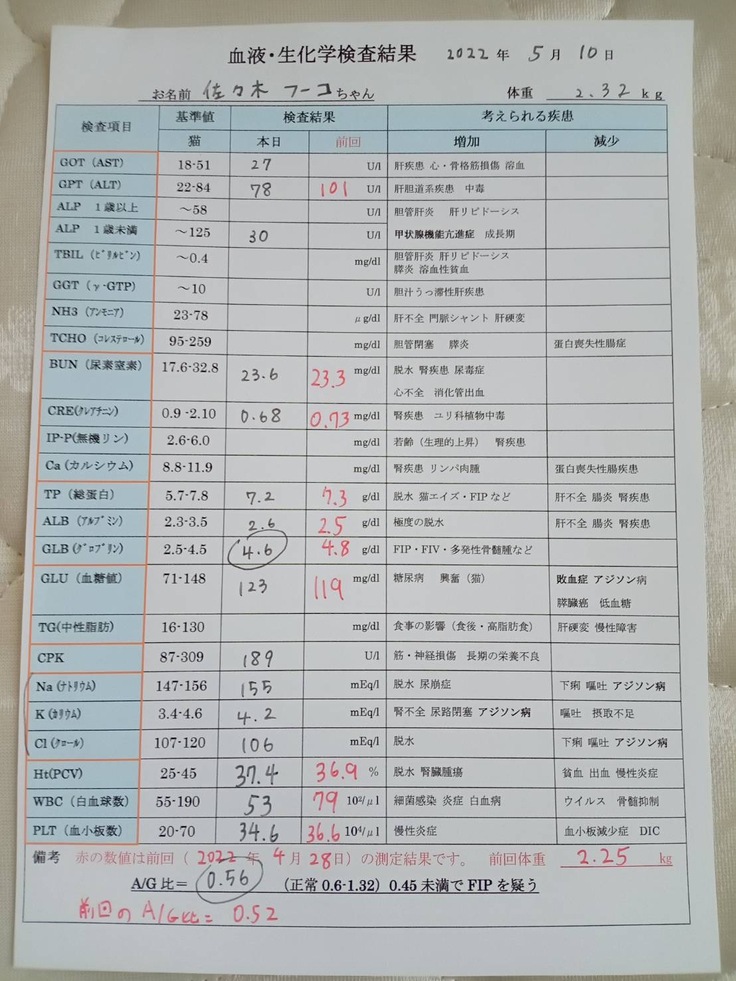 血液・生化学検査結果 2022年 5月 10日
お名前 佐々木 フーコちゃん 体重 2.32 kg
検査項目 基準値 検査結果 考えられる疾患
猫 本日 前回 増加 減少
GOT (AST) 18-51 27 U/l 肝疾患 心・骨格筋損傷 溶血
GPT (ALT) 22-84 78 101 U/l 肝胆道系疾患 中毒
ALP 1歳以上 ～58 U/l 胆管肝炎 肝リピドーシス
ALP 1歳未満 ～125 30 U/l 甲状腺機能亢進症 成長期
TBIL (ビリルビン) ～0.4 mg/dl 胆管肝炎 肝リピドーシス
膵炎 溶血性貧血
GGT (γ-GTP) ～10 U/l 胆汁うっ滞性肝疾患
NH3 (アンモニア) 23-78 μg/dl 肝不全 門脈シャント 肝硬変
TCHO (コレステロール) 95-259 mg/dl 胆管閉塞 膵炎 蛋白喪失性腸症
BUN (尿素窒素) 17.6-32.8 23.6 23.3 mg/dl 脱水 腎疾患 尿毒症
心不全 消化管出血
CRE(クレアチニン) 0.9-2.10 0.68 0.73 mg/dl 腎疾患 ユリ科植物中毒
IP-P(無機リン) 2.6-6.0 mg/dl 若齢（生理的上昇） 腎疾患
Ca (カルシウム) 8.8-11.9 mg/dl 腎疾患 リンパ肉腫 蛋白喪失性腸疾患
TP (総蛋白) 5.7-7.8 7.2 7.3 g/dl 脱水 猫エイズ・FIPなど 肝不全 腸炎 腎疾患
ALB (アルブミン) 2.3-3.5 2.6 2.5 g/dl 極度の脱水 肝不全 腸炎 腎疾患
GLB (グロブリン) 2.5-4.5 4.6 4.8 g/dl FIP・FIV・多発性骨髄腫など
GLU (血糖値) 71-148 123 119 mg/dl 糖尿病 興奮（猫） 敗血症 アジソン病
膵臓癌 低血糖
TG(中性脂肪) 16-130 mg/dl 食事の影響（食後・高脂肪食） 肝硬変 慢性障害
CPK 87-309 189 U/l 筋・神経損傷 長期の栄養不良
Na (ナトリウム) 147-156 155 mEq/l 脱水 尿崩症 下痢 嘔吐 アジソン病
K (カリウム) 3.4-4.6 4.2 mEq/l 腎不全 尿路閉塞 アジソン病 嘔吐 摂取不足
Cl (クロール) 107-120 106 mEq/l 脱水 下痢 嘔吐 アジソン病
Ht(PCV) 25-45 37.4 36.9 % 脱水 腎臓腫瘍 貧血 出血 慢性炎症
WBC (白血球数) 55-190 53 79 10²/μl 細菌感染 炎症 白血病 ウイルス 骨髄抑制
PLT (血小板数) 20-70 34.6 36.6 10⁴/μl 慢性炎症 血小板減少症 DIC
備考 赤の数値は前回（2022年 4月 28日）の測定結果です。 前回体重 2.25 kg
A/G 比＝ 0.56 （正常 0.6-1.32）0.45 未満で FIP を疑う
前回の A/G比＝ 0.52